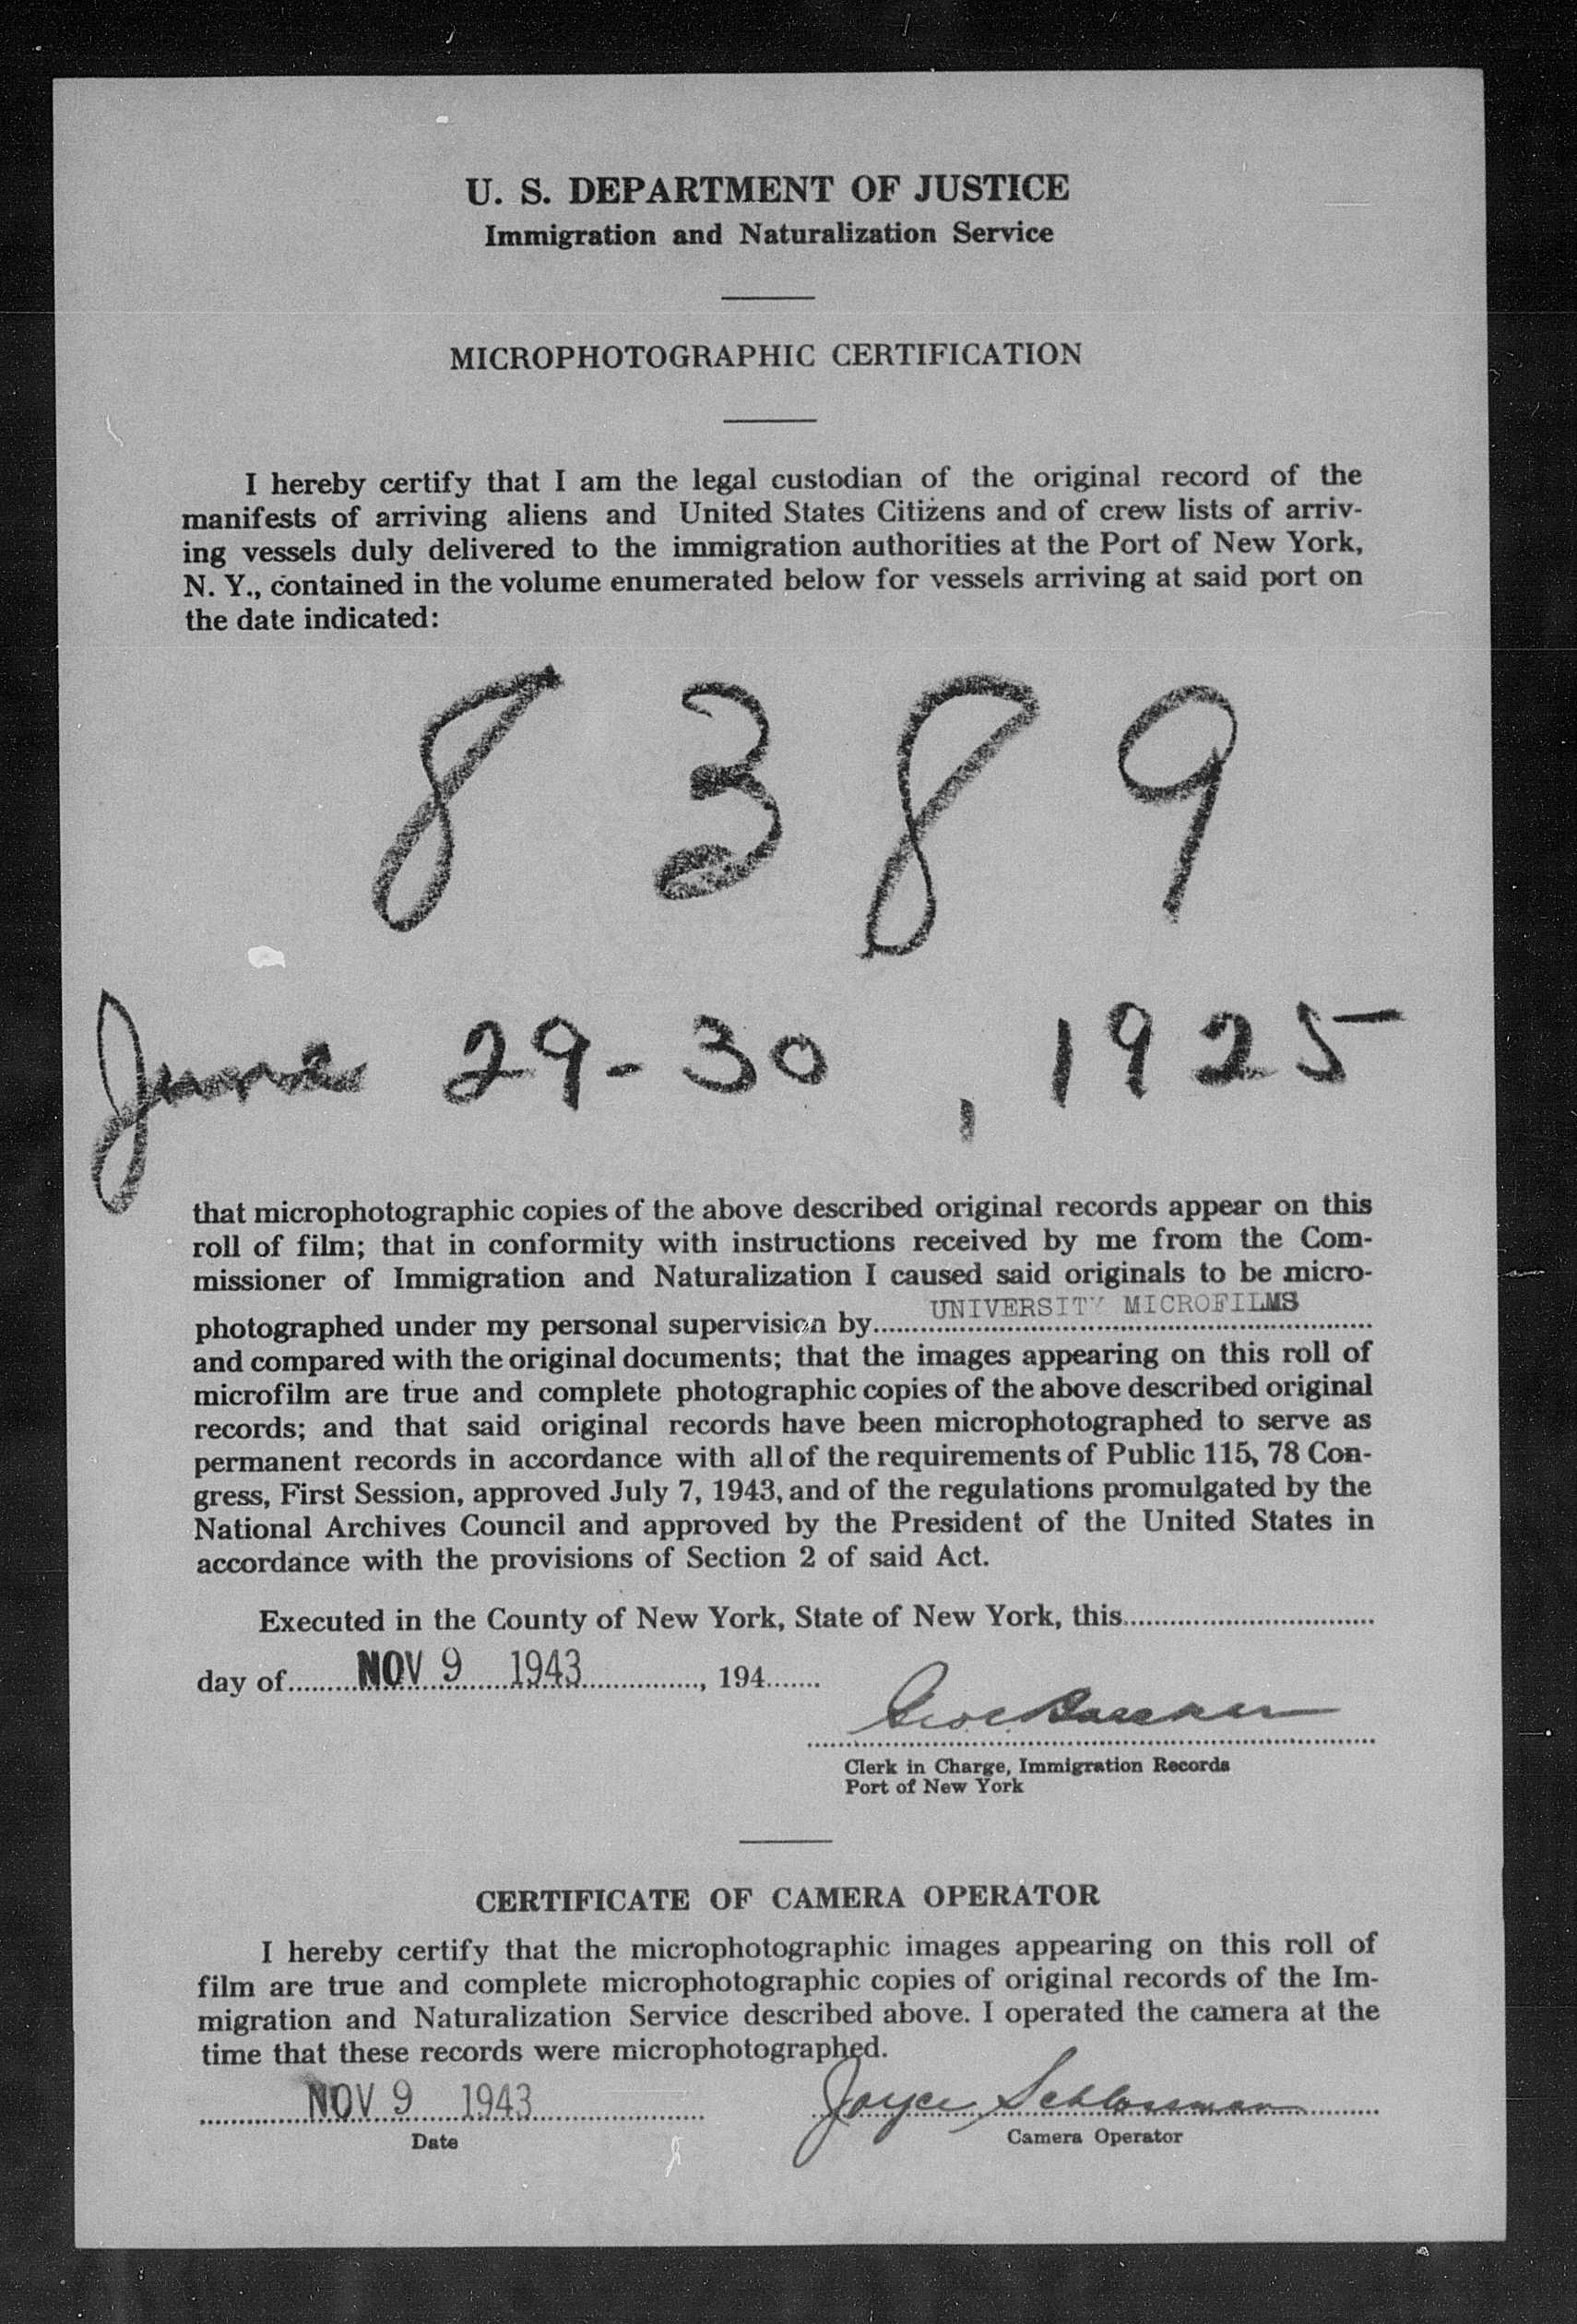 U. S. DEPARTMENT OF JUSTICE
Immigration and Naturalization Service
MICROPHOTOGRAPHIC CERTIFICATION
I hereby certify that I am the legal custodian of the original record of the
manifests of arriving aliens and United States Citizens and of crew lists of arriv-
ing vessels duly delivered to the immigration authorities at the Port of New York,
N. Y., contained in the volume enumerated below for vessels arriving at said port on
the date indicated:
8 3 8 9
June 29-30, 1925
that microphotographic copies of the above described original records appear on this
roll of film; that in conformity with instructions received by me from the Com-
missioner of Immigration and Naturalization I caused said originals to be micro-
photographed under my personal supervision by UNIVERSITY MICROFILMS
and compared with the original documents; that the images appearing on this roll of
microfilm are true and complete photographic copies of the above described original
records; and that said original records have been microphotographed to serve as
permanent records in accordance with all of the requirements of Public 115, 78 Con-
gress, First Session, approved July 7, 1943, and of the regulations promulgated by the
National Archives Council and approved by the President of the United States in
accordance with the provisions of Section 2 of said Act.
Executed in the County of New York, State of New York, this
day of NOV 9 1943, 194
Clerk in Charge, Immigration Records
Port of New York
CERTIFICATE OF CAMERA OPERATOR
I hereby certify that the microphotographic images appearing on this roll of
film are true and complete microphotographic copies of original records of the Im-
migration and Naturalization Service described above. I operated the camera at the
time that these records were microphotographed.
NOV 9 1943 Joyce Schlossman
Date Camera Operator